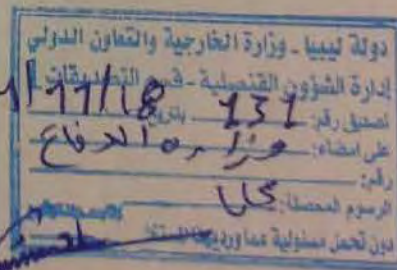 دولة ليبيا - وزارة الخارجية والتعاون الدولي
إدارة الشؤون القنصلية - قسم التصديقات
تصديق رقم: 131 بتاريخ 11/18
على امضاء: وزارة الدفاع
رقم:
الرسوم المحصلة:
دون تحمل مسئولية عما ورد بهذا المستند